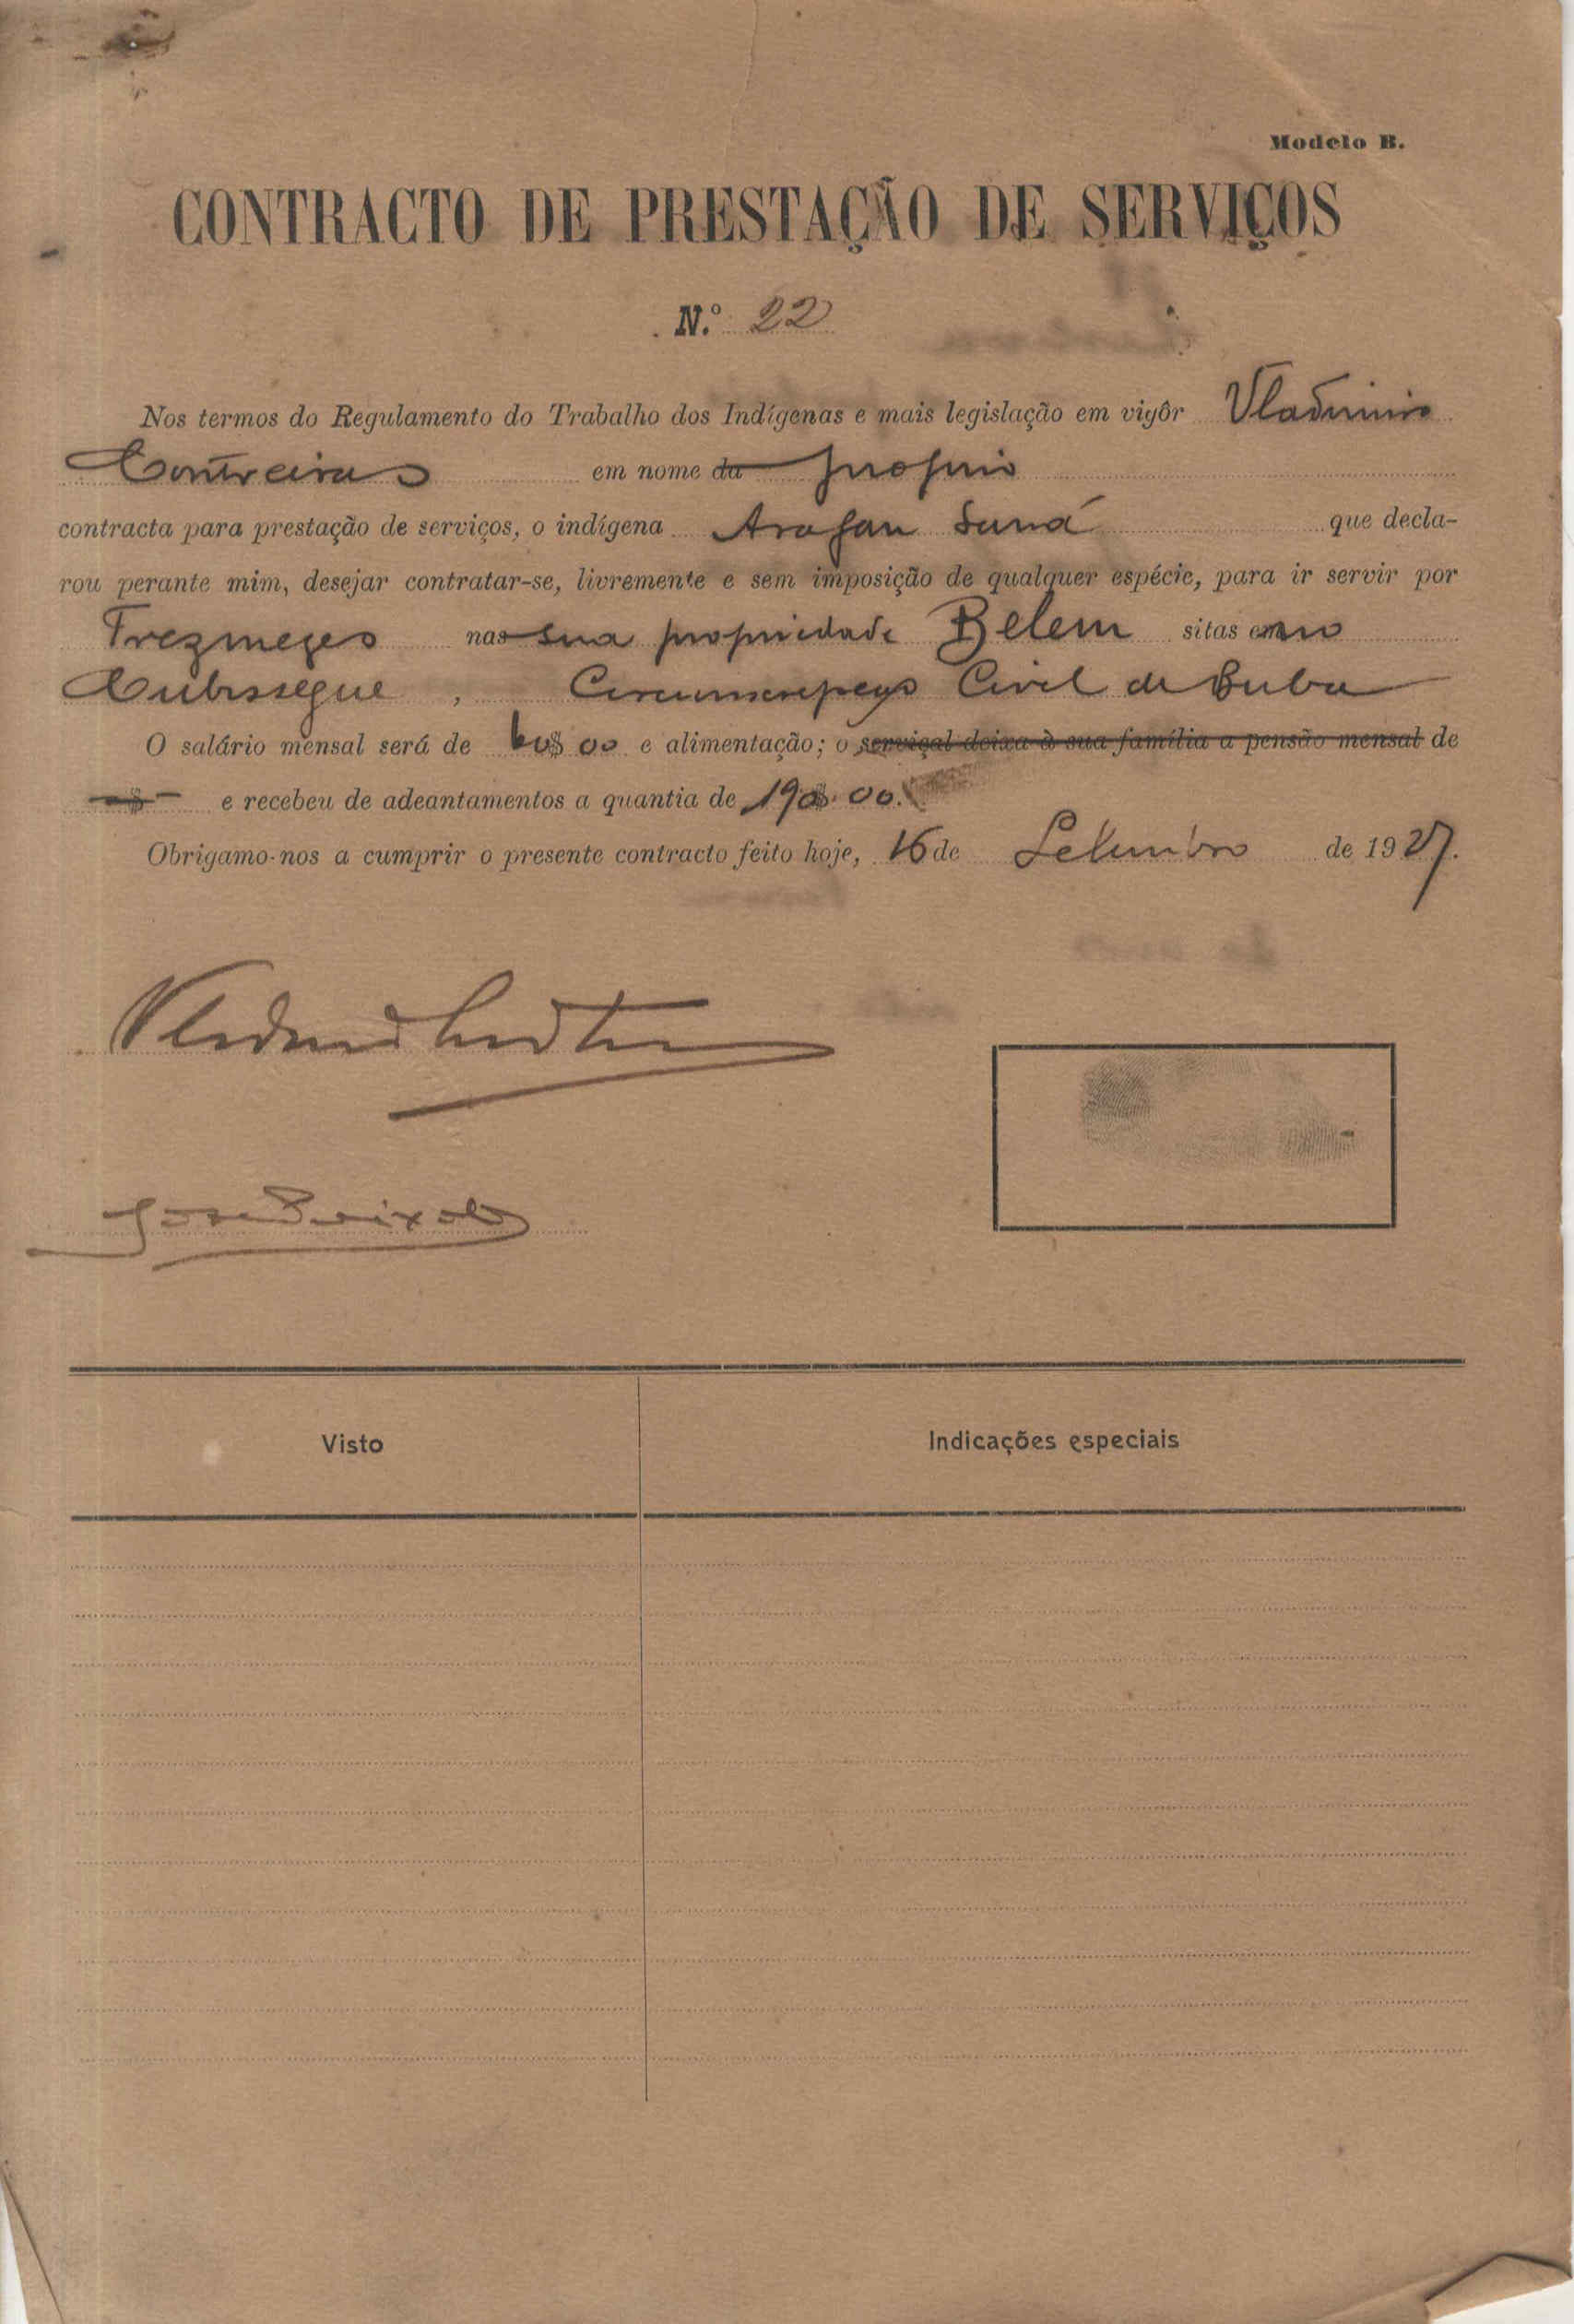 Modelo B.
CONTRACTO DE PRESTAÇÃO DE SERVIÇOS
N.º 22
Nos termos do Regulamento do Trabalho dos Indígenas e mais legislação em vigôr Vladimiro
Contreiras em nome da proprio
contracta para prestação de serviços, o indígena Arafan Saná que decla-
rou perante mim, desejar contratar-se, livremente e sem imposição de qualquer espécie, para ir servir por
Trezmezes nas sua propriedade Belem sitas em no
Cubissegue, Circumscripção Civil de Buba
O salário mensal será de 60$00 e alimentação; o serviçal deixa à sua família a pensão mensal de
-$- e recebeu de adeantamentos a quantia de 190$00.
Obrigamo-nos a cumprir o presente contracto feito hoje, 16 de Setembro de 1927.
José Peixoto
Visto Indicações especiais